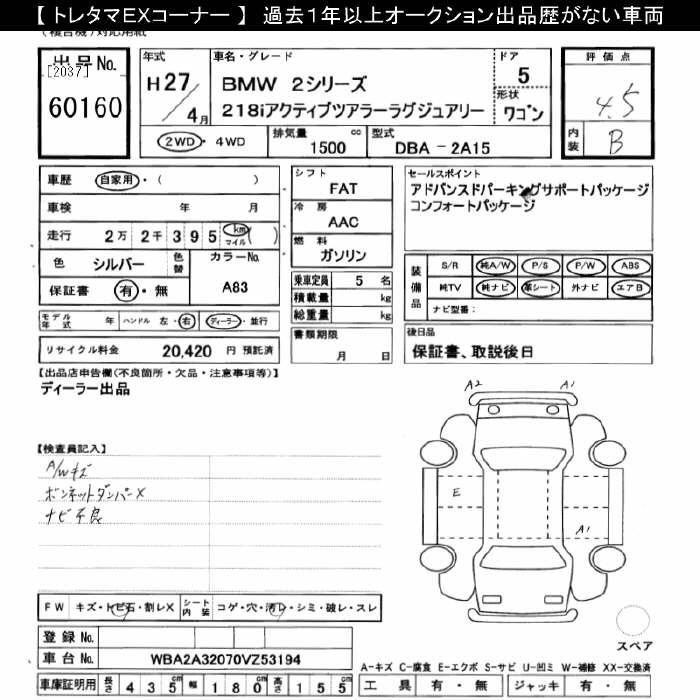 【 トレタマEXコーナー 】 過去1年以上オークション出品歴がない車両
(複合機)対応用紙
出品No.
[2037]
60160
年式
H 27/4月
車名・グレード
BMW 2シリーズ
218iアクティブツアラーラグジュアリー
ドア
5
形状
ワゴン
評価点
4.5
内装
B
2WD ・ 4WD
排気量
1500 cc
型式
DBA - 2A15
車歴
自家用・( )
車検
年 月
走行
2万 2千 3 9 5 km マイル ( )
色
シルバー
色替
カラーNo.
A83
保証書
有・無
モデル年式
年
ハンドル 左・右
ディーラー・並行
リサイクル料金 20,420 円 預託済
シフト
FAT
冷房
AAC
燃料
ガソリン
乗車定員 5 名
積載量 kg
総重量 kg
書類期限
月 日
セールスポイント
アドバンスドパーキングサポートパッケージ
コンフォートパッケージ
装備品
S/R 純A/W P/S P/W ABS
純TV 純ナビ 革シート 外ナビ エアB
ナビ型番:
後日品
保証書、取説後日
【出品店申告欄(不良箇所・欠品・注意事項等)】
ディーラー出品
【検査員記入】
A/Wキズ
ボンネットダンパーX
ナビ不良
A2
A1
E
A1
スペア
FW キズ・トビ石・割レX
シート内装 コゲ・穴・汚レ・シミ・破レ・スレ
登録No.
車台No. WBA2A32070VZ53194
車庫証明用 長さ 435 cm 幅 180 cm 高さ 155 cm
A-キズ C-腐食 E-エクボ S-サビ U-凹ミ W-補修 XX-交換済
工具 有・無 ジャッキ 有・無